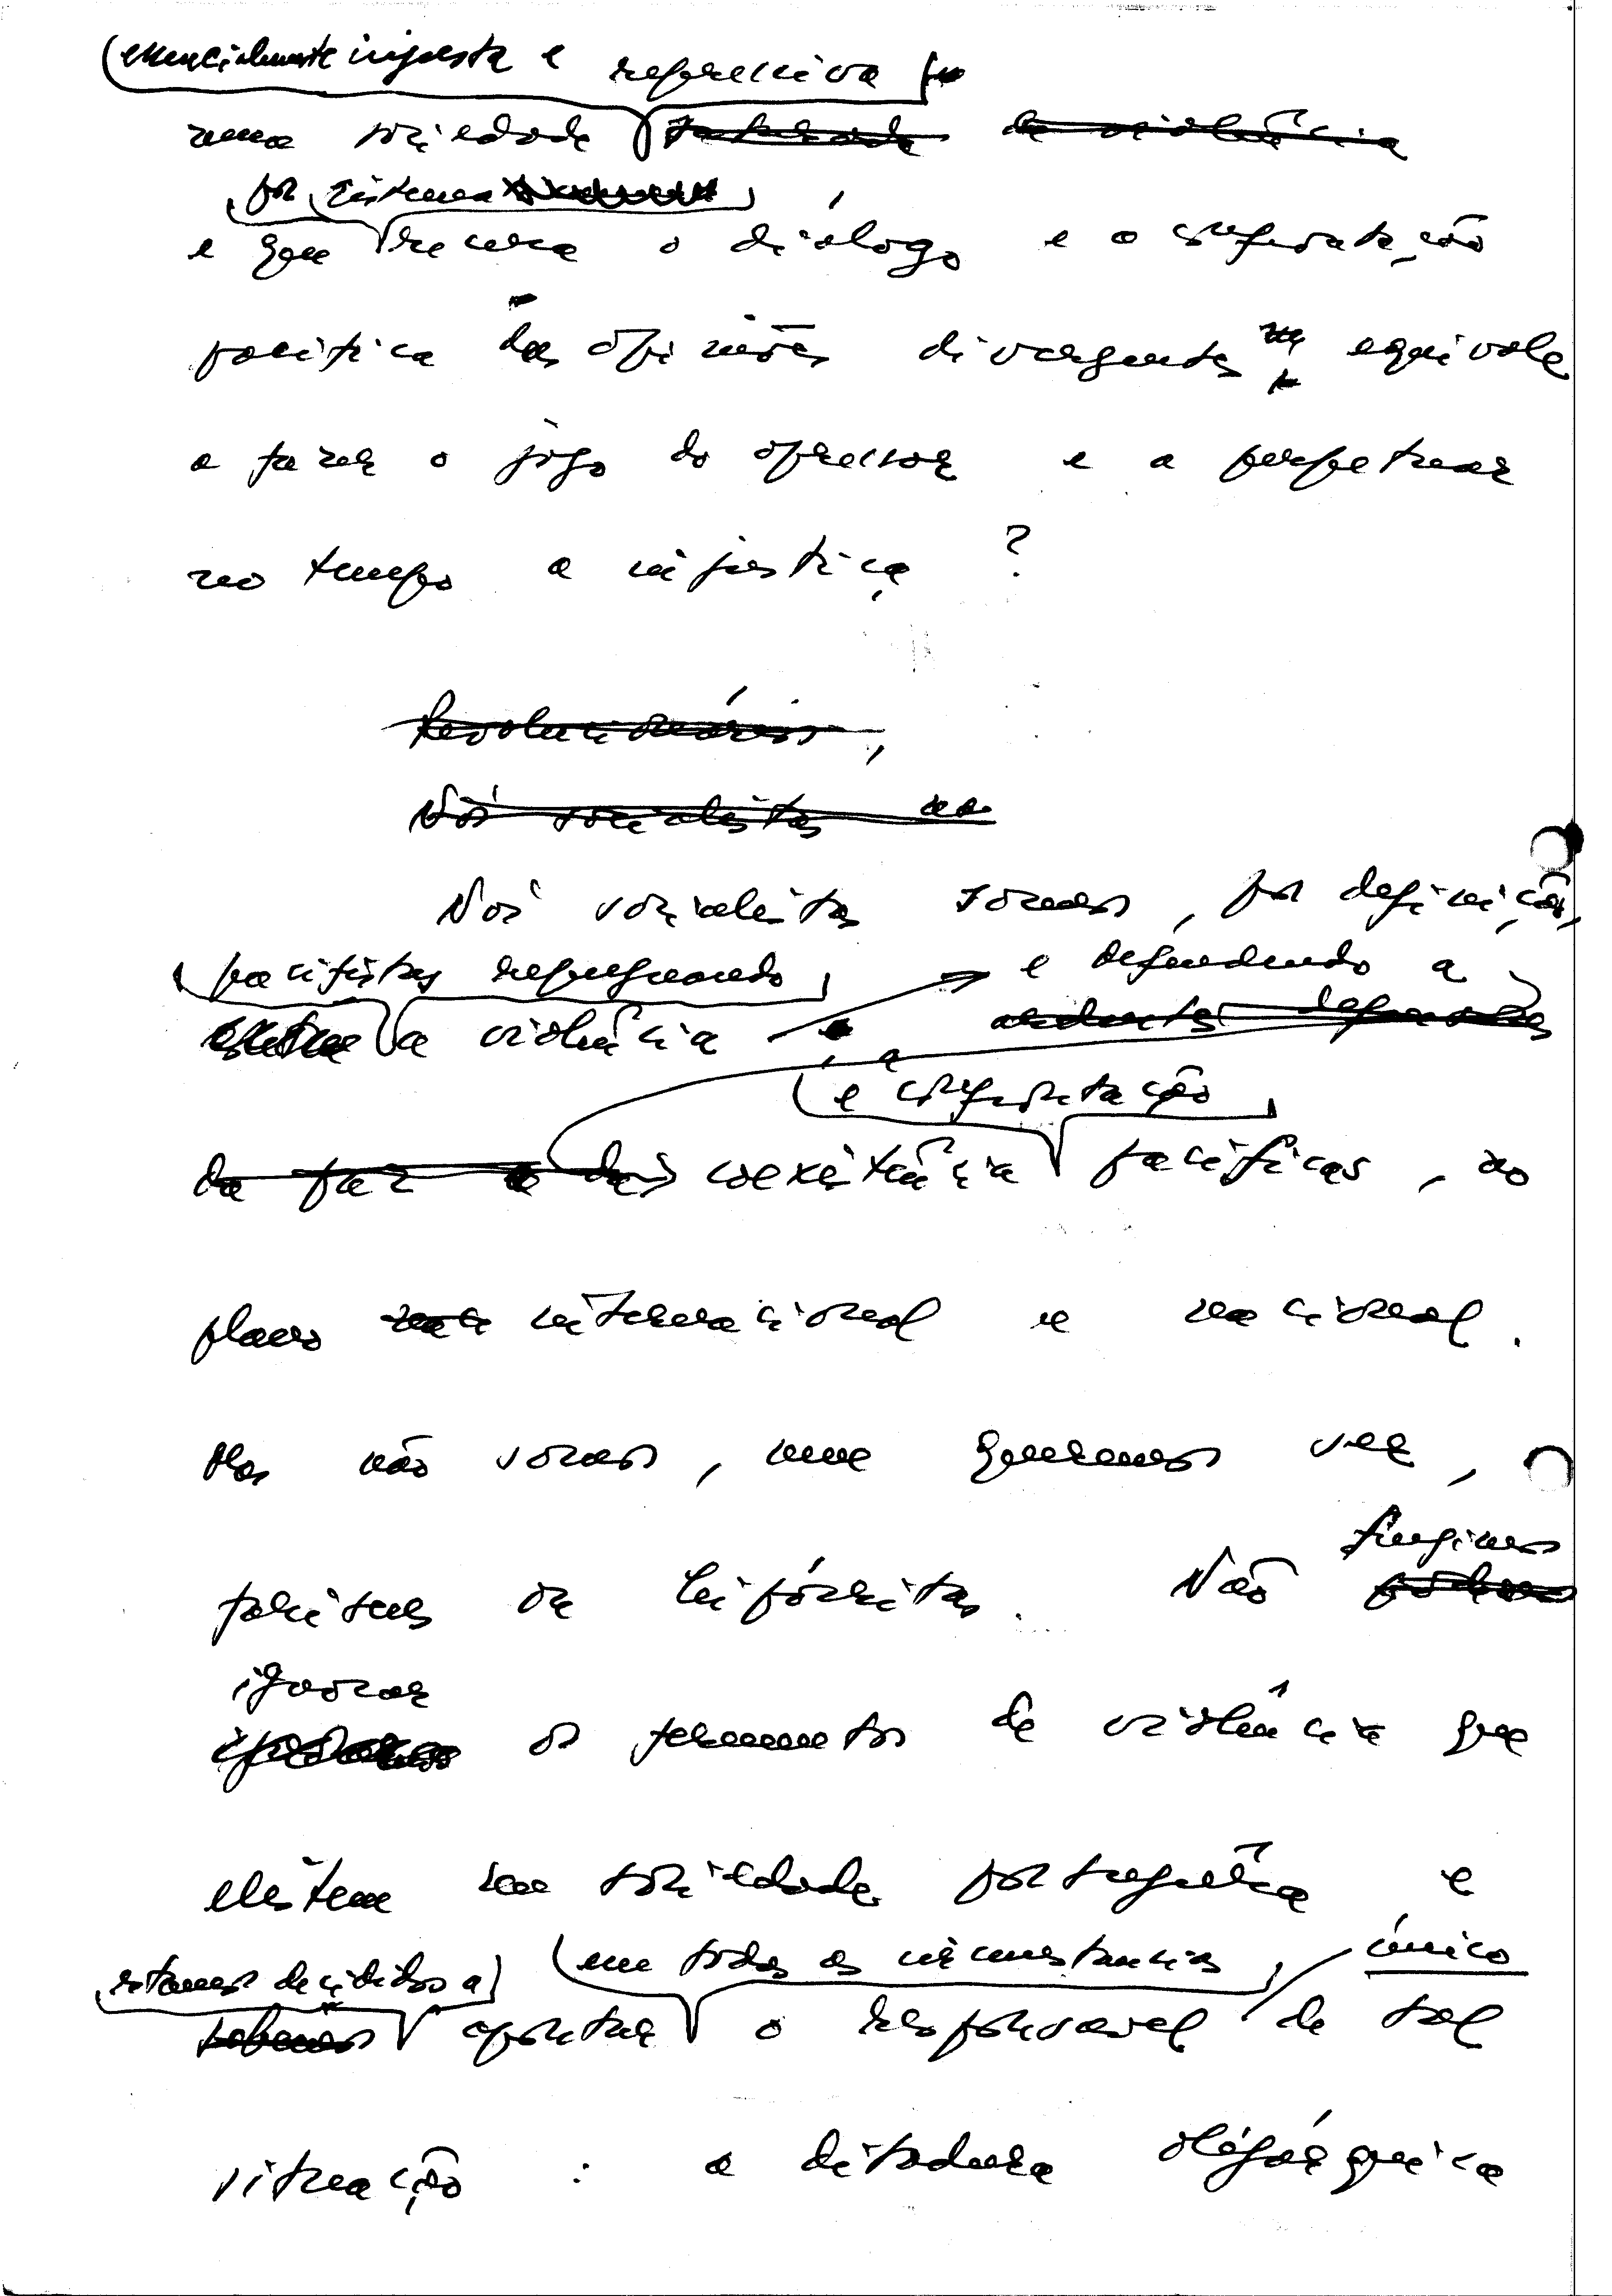 (essencialmente injusta e repressiva
numa sociedade fechada da violência
por sistema
e que recusa o diálogo e a confrontação
política das opiniões divergentes não equivale
a fazer o jogo do opressor e a perpetuar
no tempo a injustiça ?
Revolucionários,
Nós socialistas
Nós socialistas somos, por definição,
pacifistas repugnando e defendendo a
a violência ardentes defensores
e confrontação
da paz e da coexistência pacíficas, no
plano internacional e nacional.
Mas não somos, nem queremos ser,
fariseus ou hipócritas. Não fingimos
ignorar
os fermentos de violência que
existem na sociedade portuguesa e
estamos decididos a em todas as circunstancias, único
sabemos apontar o responsavel de tal
situação : a ditadura oligárquica